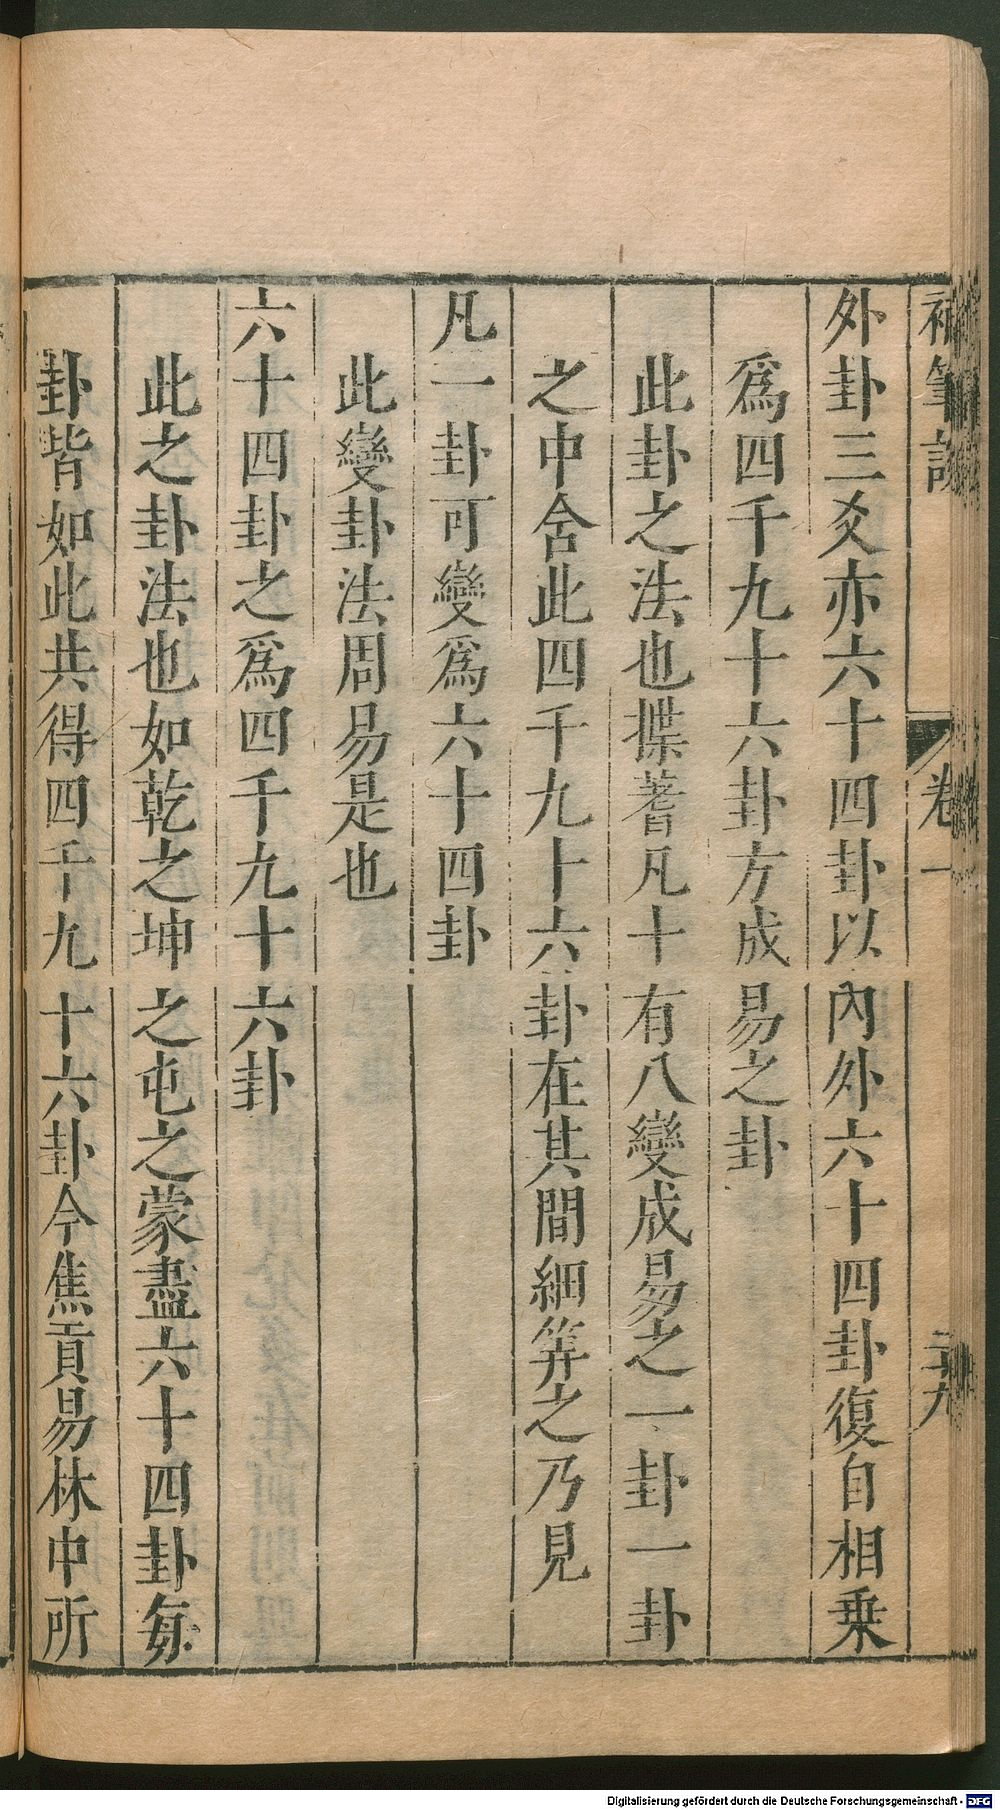 補筆談 卷一 二十九
外卦三爻亦六十四卦以內外六十四卦復自相乘
爲四千九十六卦方成易之卦
此卦之法也揲蓍凡十有八變成易之一卦一卦
之中含此四千九十六卦在其間細筭之乃見
凡一卦可變爲六十四卦
此變卦法周易是也
六十四卦之爲四千九十六卦
此之卦法也如乾之坤之屯之蒙盡六十四卦每
卦皆如此共得四千九十六卦今焦貢易林中所
Digitalisierung gefördert durch die Deutsche Forschungsgemeinschaft - DFG